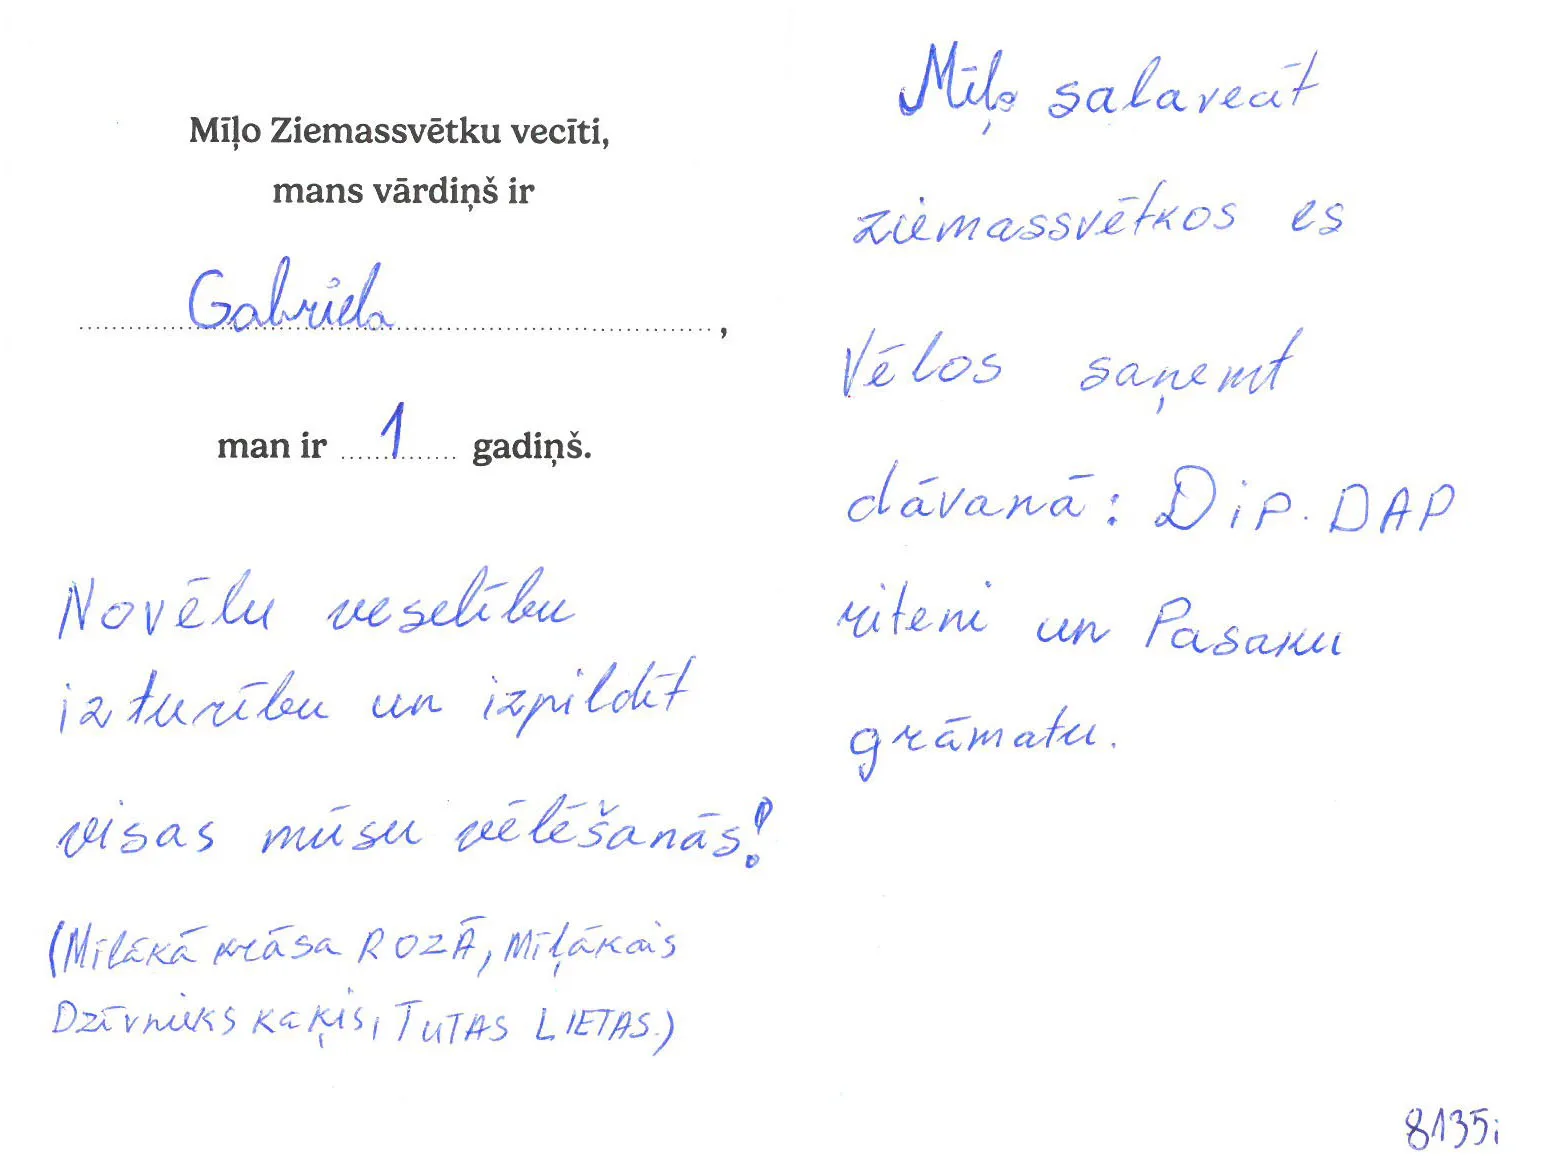 Mīļo Ziemassvētku vecīti,
mans vārdiņš ir
Gabriela,
man ir 1 gadiņš.
Novēlu veselību
izturību un izpildīt
visas mūsu vēlēšanās!
(Mīlākā krāsa ROZĀ, Mīļākais
Dzīvnieks kaķis, TUTAS LIETAS.)
Mīļo salavecīt
ziemassvētkos es
Vēlos saņemt
dāvanā: DiP. DAP
riteni un Pasaku
grāmatu.
8135i